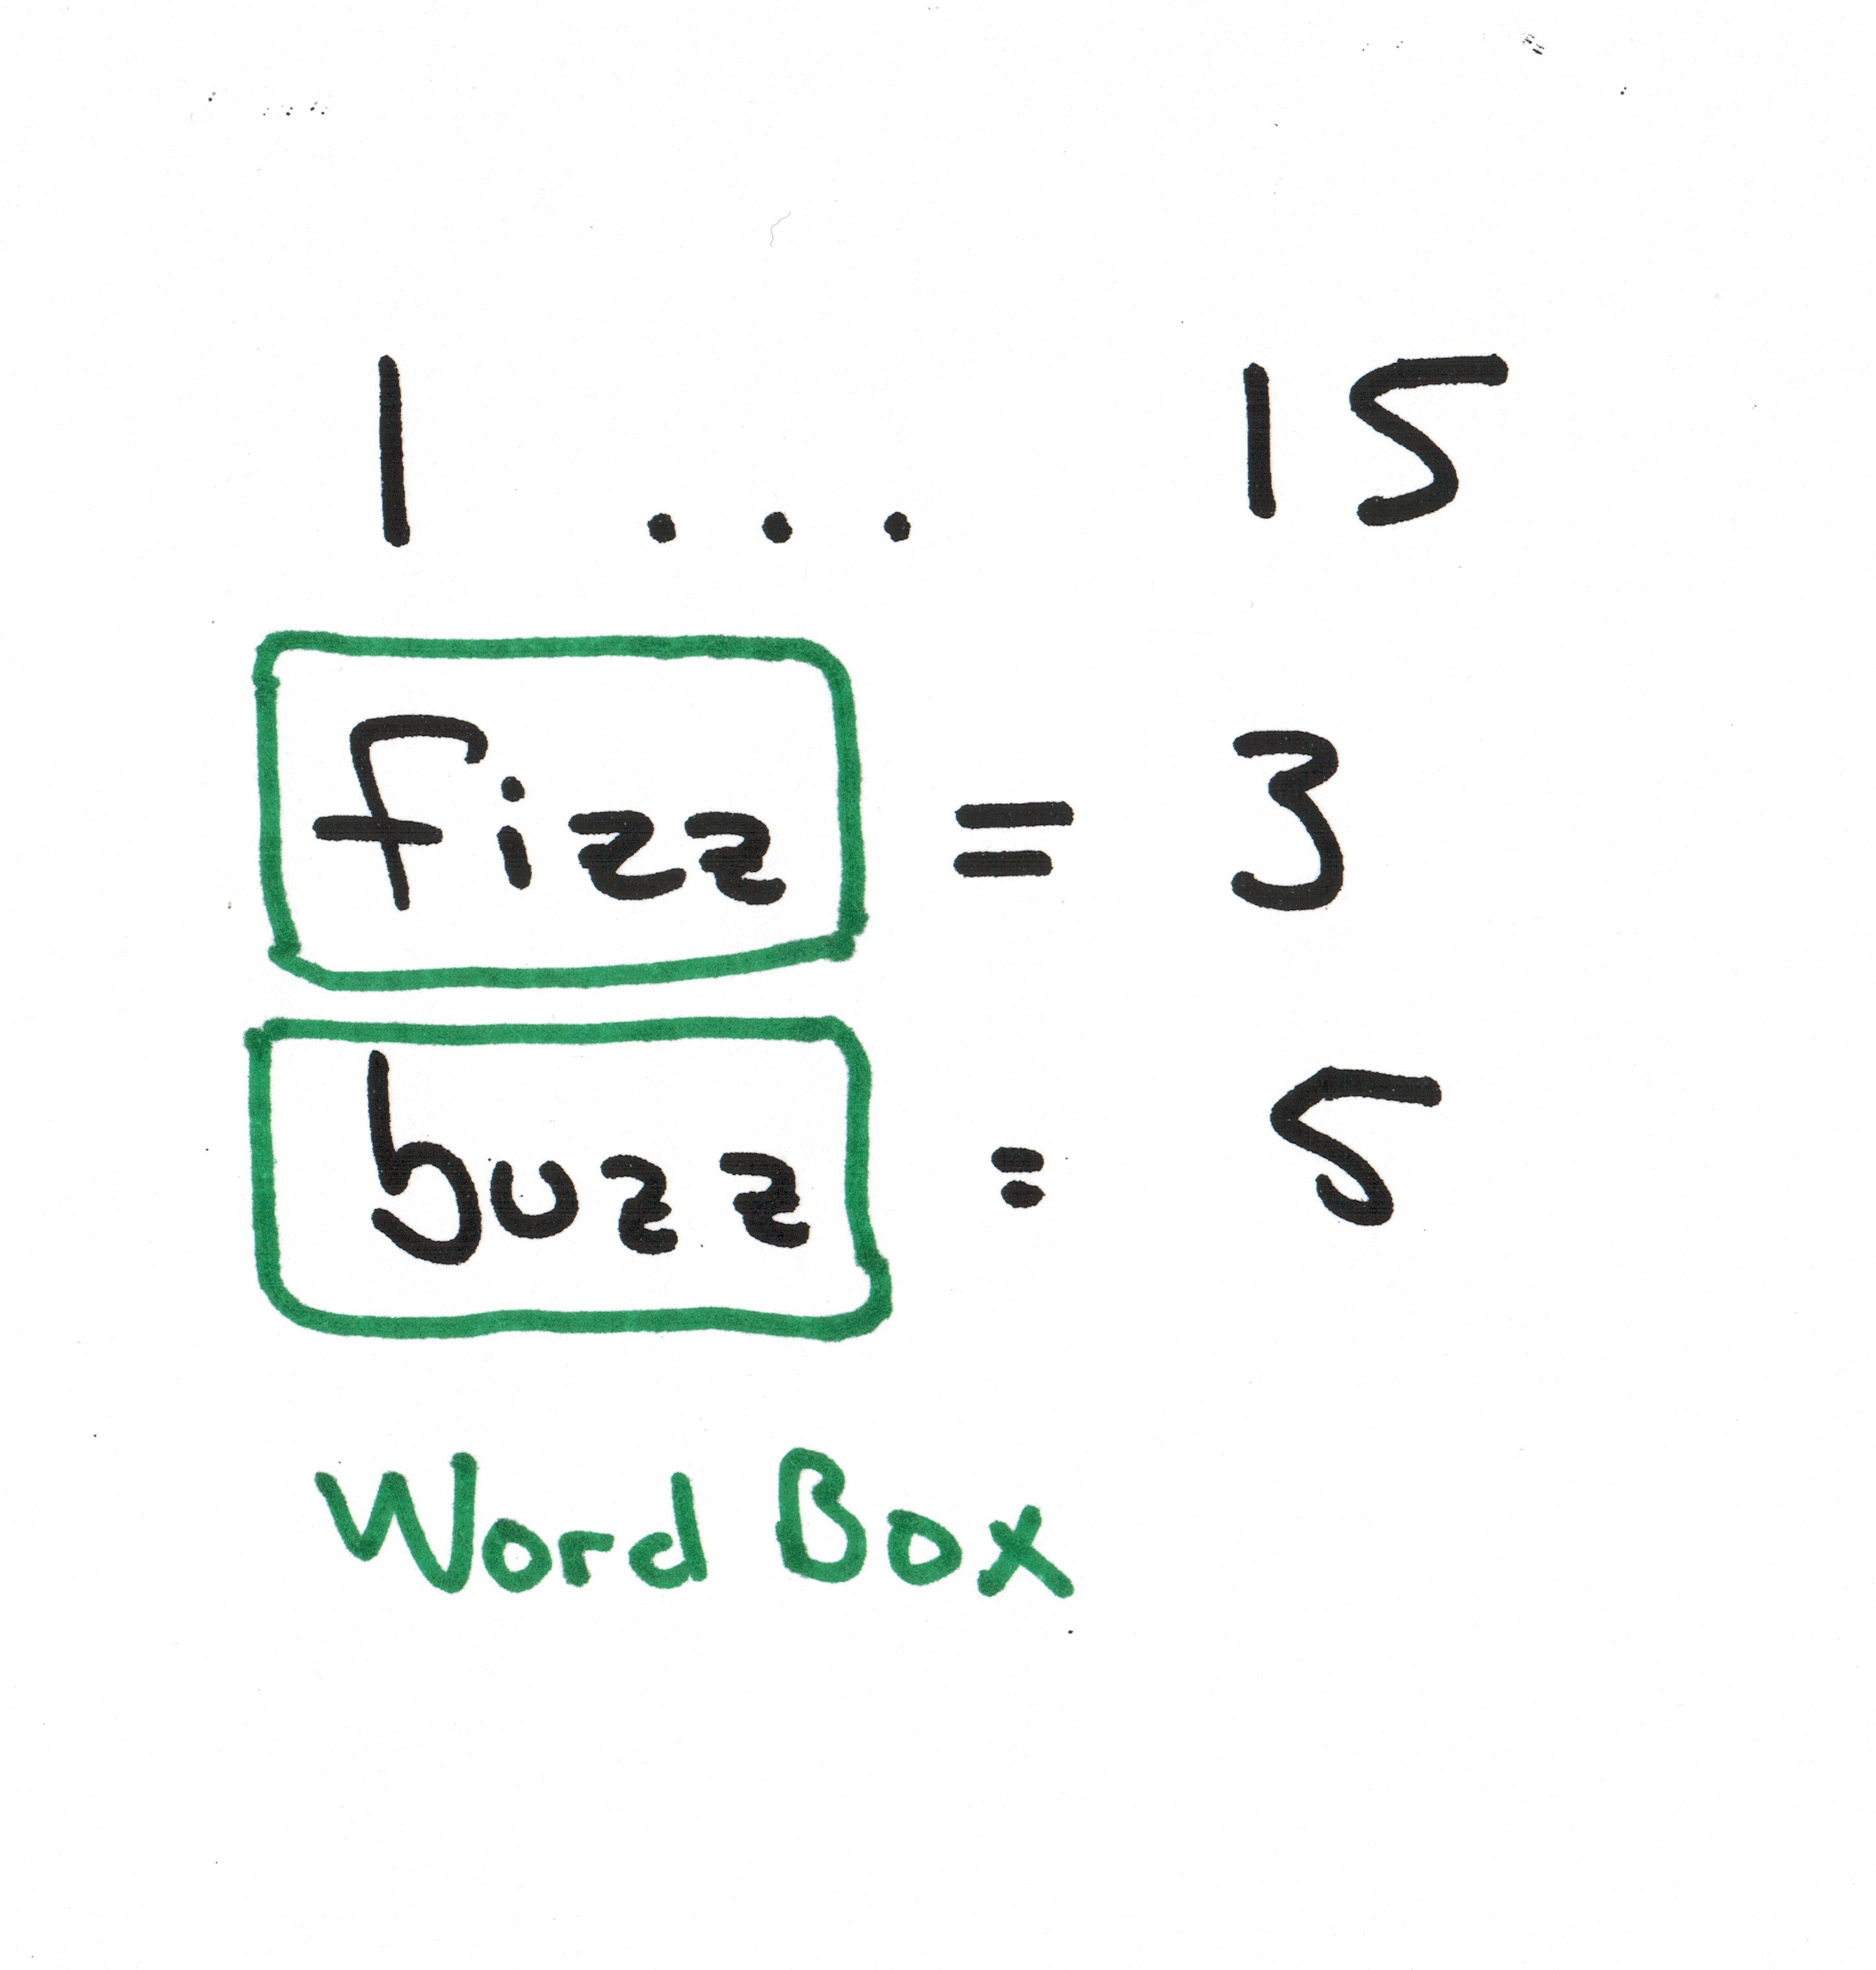 1 ... 15
fizz = 3
buzz = 5
Word Box